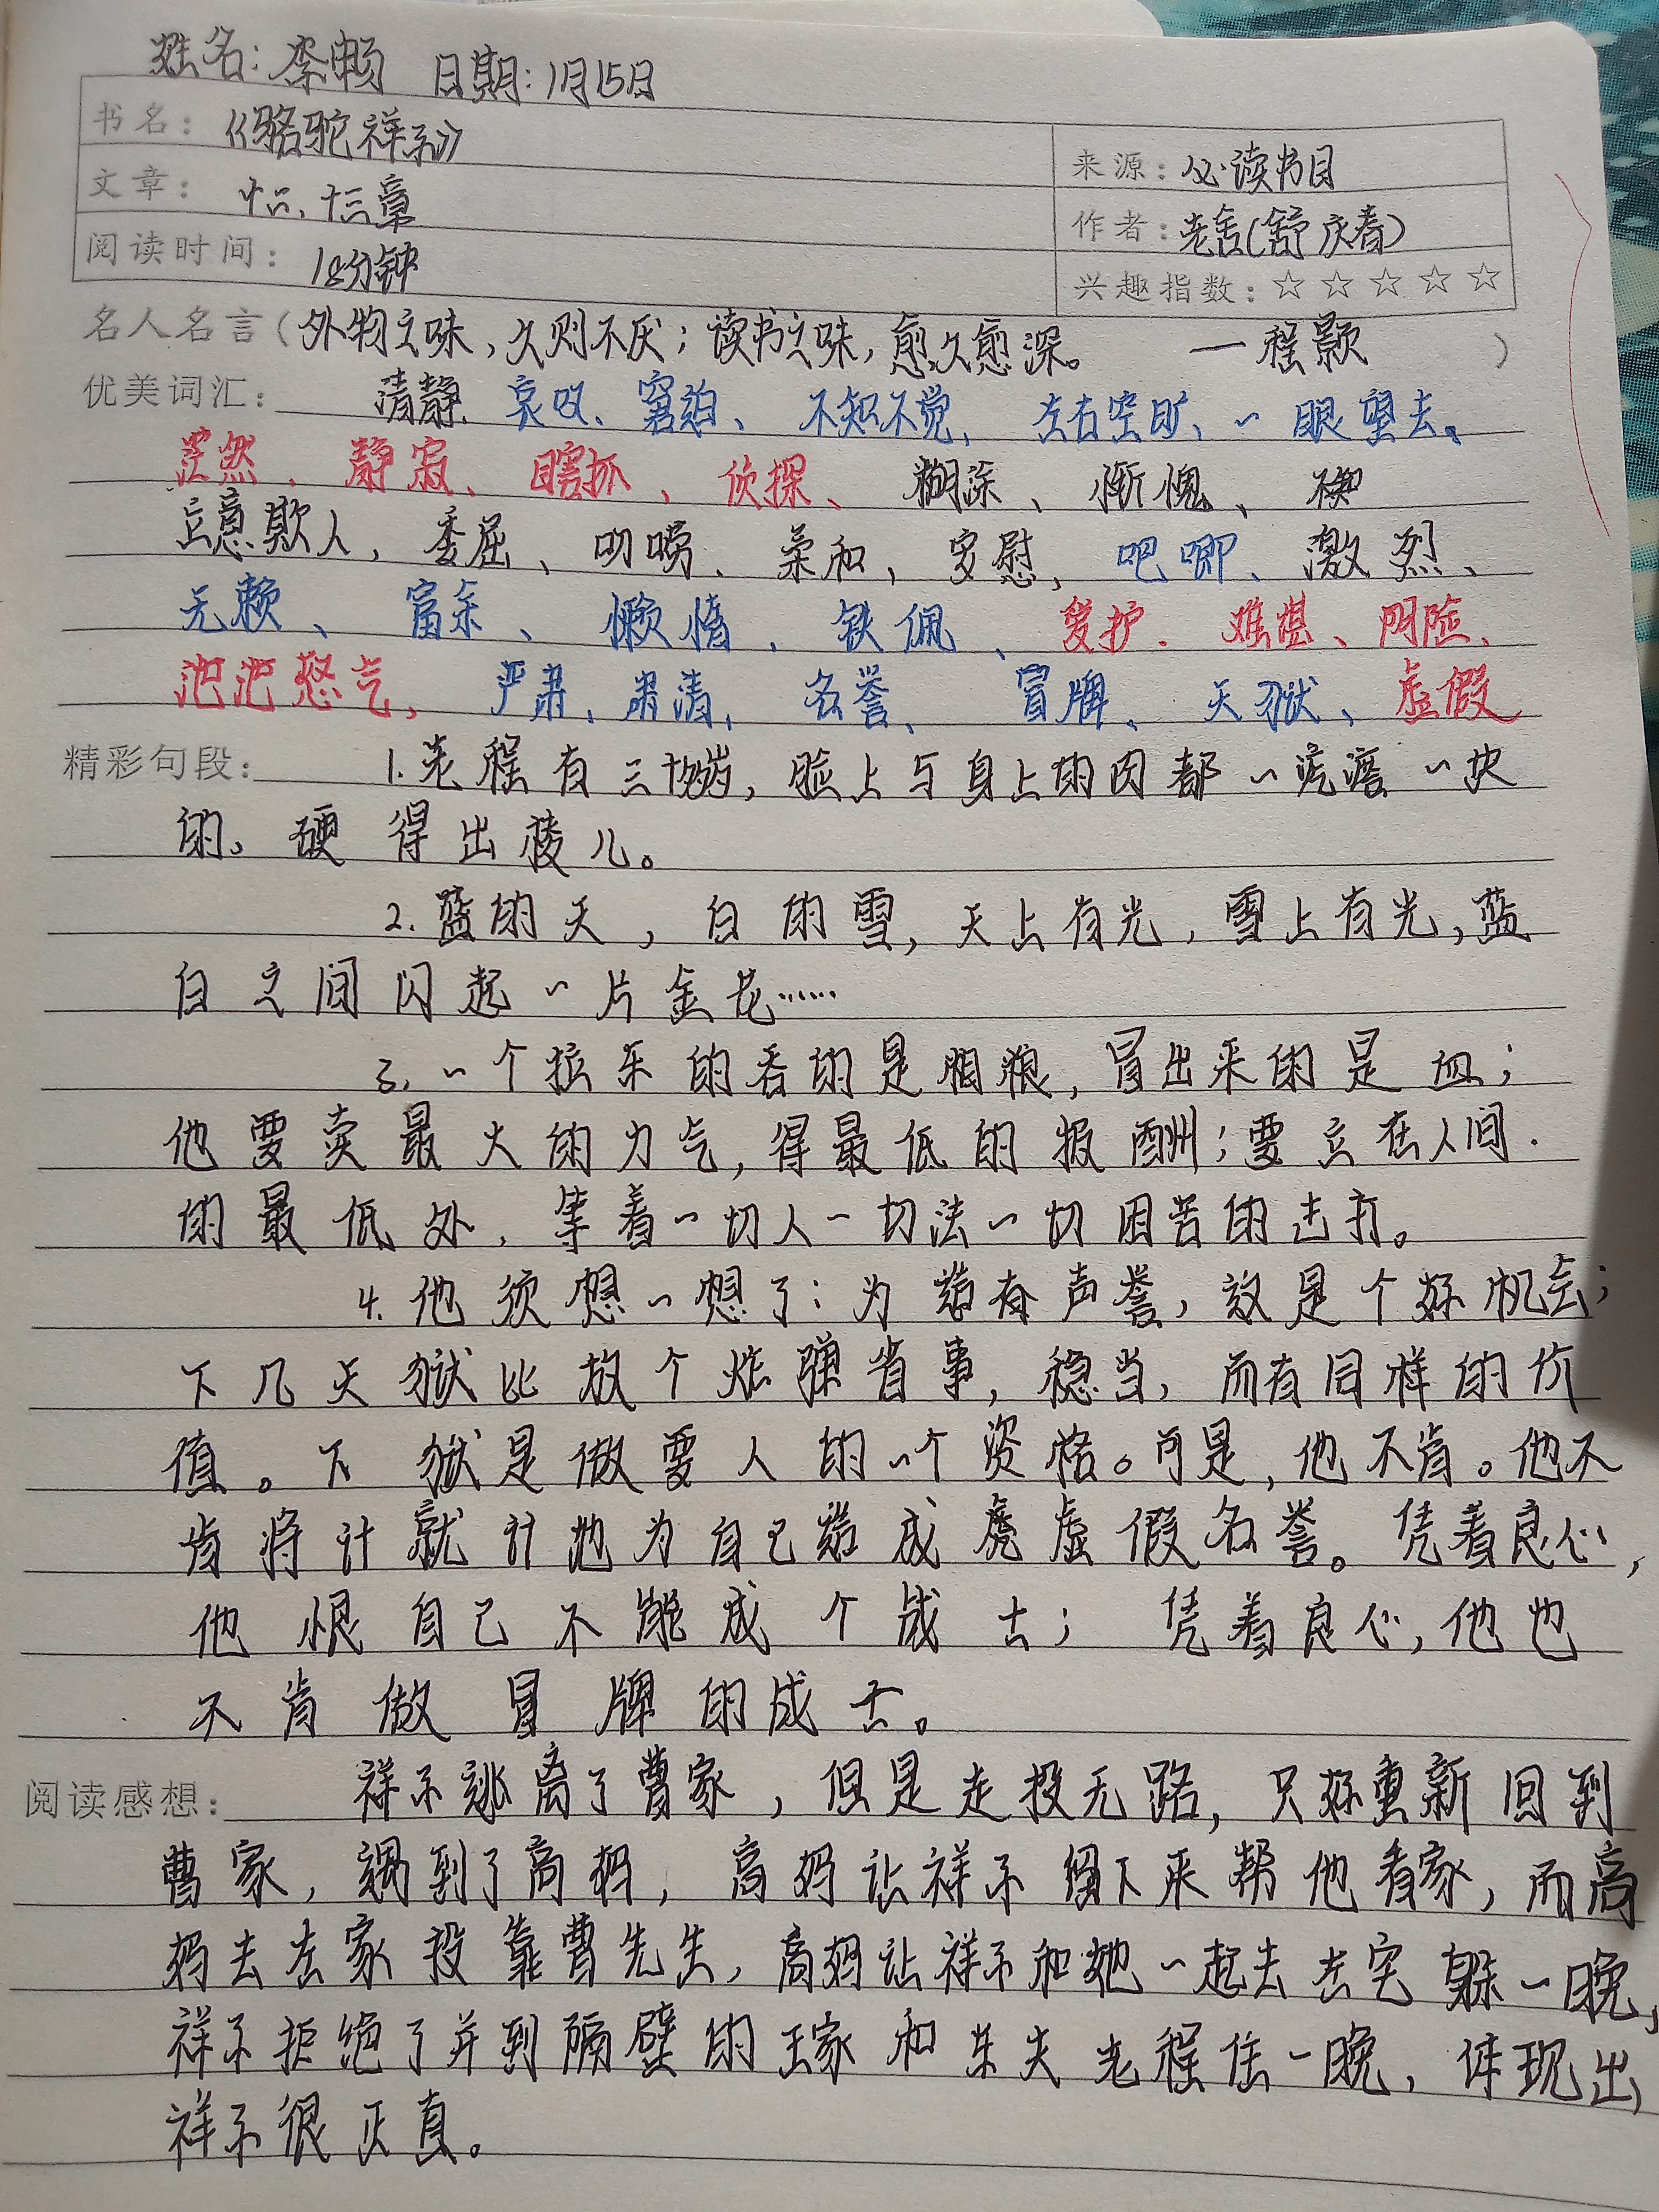 姓名:李畅 日期:1月15日
书名:《骆驼祥子》
来源:必读书目
文章:十二、十三章
作者:老舍(舒庆春)
阅读时间:18分钟
兴趣指数:☆☆☆☆☆
名人名言(外物之味,久则不厌;读书之味,愈久愈深。 —程颢)
优美词汇: 清静、哀叹、窘迫、不知不觉、左右空旷、一眼望去、
茫然、静寂、瞎抓、侦探、糊涂、惭愧、
意欺人,委屈、叨唠、柔和,安慰,吧唧、激烈、
无赖、富余、懒惰、钦佩、爱护、难堪、阴险、
泡泡怒气,严肃、肃清、名誉、冒牌、天狱、虚假
精彩句段: 1.老程有三十多岁,脸上与身上的肉都一疙瘩一块
的。硬得出棱儿。
2.蓝的天,白的雪,天上有光,雪上有光,蓝
白之间闪起一片金花……
3.一个拉车的吞的是粗粮,冒出来的是血;
他要卖最大的力气,得最低的报酬;要立在人间
的最低处,等着一切人一切法一切困苦的击打。
4.他须想一想了:为造有声誉,这是个好机会;
下几天狱比放个炸弹省事,稳当,而有同样的价
值。下狱是做要人的一个资格。可是,他不肯。他不
肯将计就计地为自己造成虚假名誉。凭着良心,
他恨自己不能成个战士;凭着良心,他也
不肯做冒牌的战士。
阅读感想: 祥子逃离了曹家,但是走投无路,只好重新回到
曹家,遇到了高妈,高妈让祥子留下来帮他看家,而高
妈去左家投靠曹先生,高妈让祥子和她一起去左宅躲一晚,
祥子拒绝了并到隔壁的王家和车夫老程住一晚,体现出
祥子很正直。